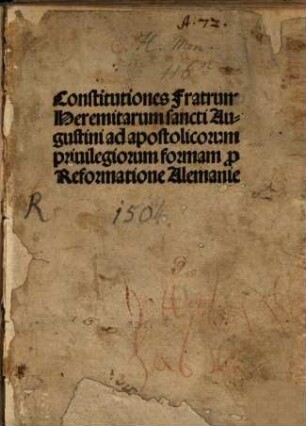 A. 72.
H. Mon.
116
Constitutiones Fratrum
Heremitarum sancti Au-
gustini ad apostolicorum
priuilegiorum formam ꝓ
Reformatione Alemanie
R
1504.